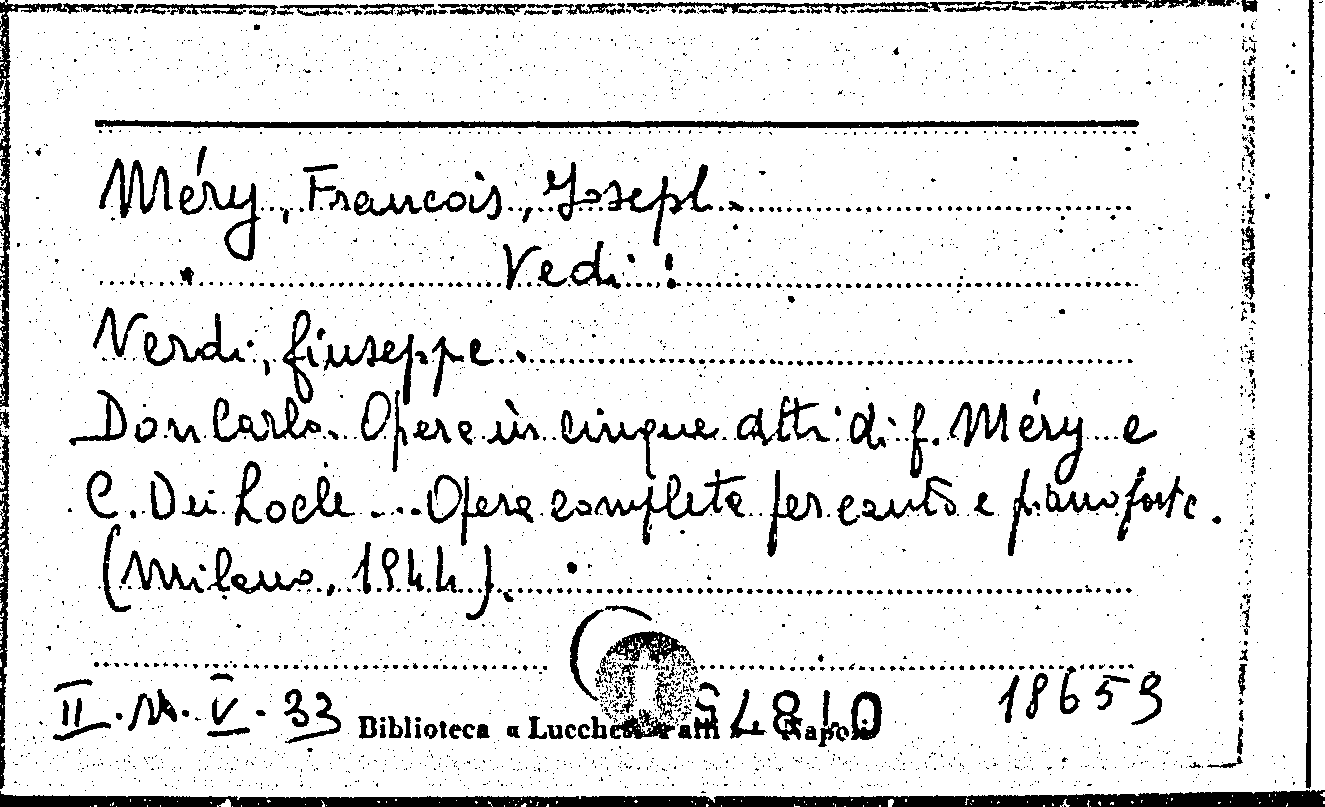 Méry, Francois, Joseph.
Vedi:
Verdi, Giuseppe.
Don Carlo. Opera in cinque atti di G. Méry e
C. Dei Locle... Opera completa per canto e pianoforte.
(Milano, 1944).
II. M. V. 33 Biblioteca « Lucchesi Palli » - Napoli 01875 18659